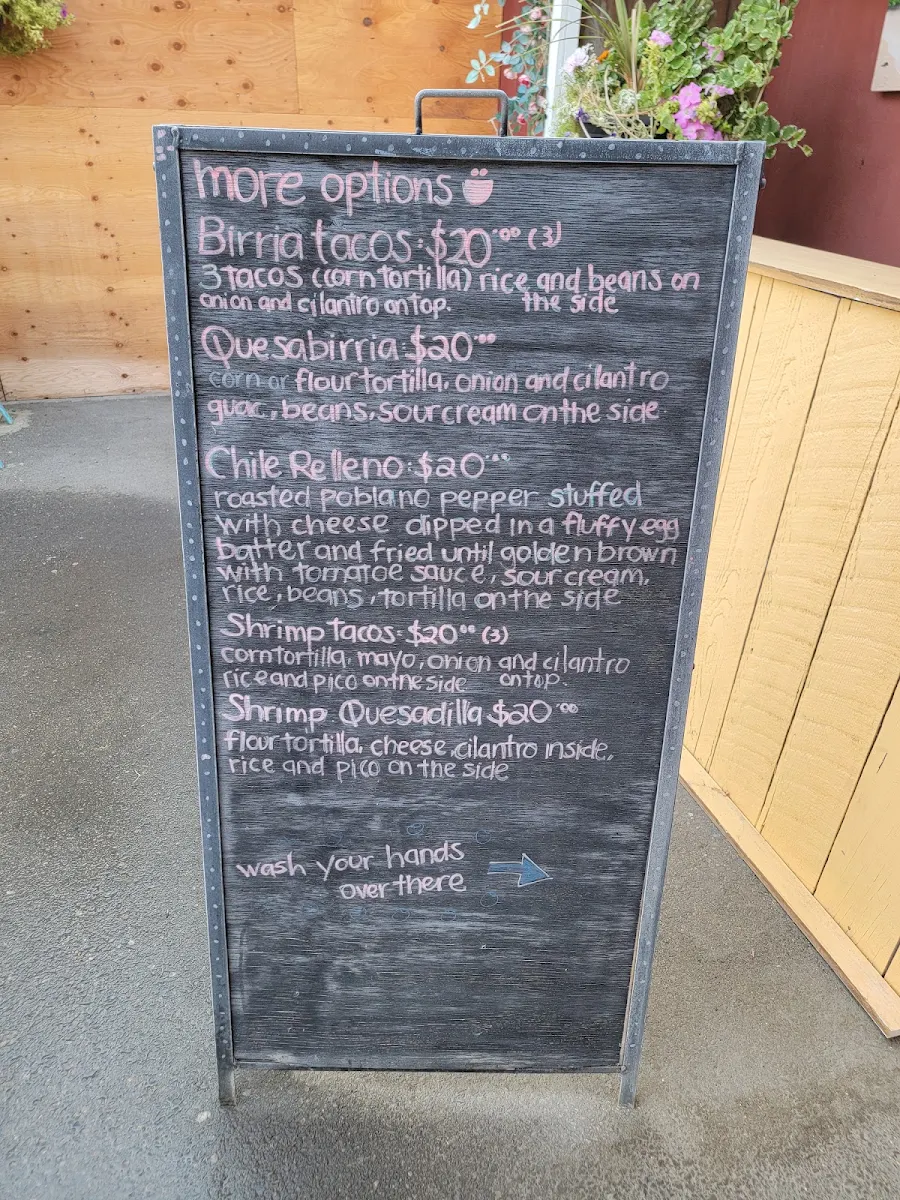 more options
Birria tacos: $20.00 (3)
3 tacos (corn tortilla) rice and beans on
onion and cilantro on top. the side
Quesabirria: $20.00
corn or flour tortilla, onion and cilantro
guac, beans, sour cream on the side
Chile Relleno: $20.00
roasted poblano pepper stuffed
with cheese dipped in a fluffy egg
batter and fried until golden brown
with tomatoe sauce, sour cream,
rice, beans, tortilla on the side
Shrimp tacos: $20.00 (3)
corn tortilla, mayo, onion and cilantro
rice and pico on the side on top.
Shrimp Quesadilla $20.00
flour tortilla, cheese, cilantro inside,
rice and pico on the side
wash your hands
over there